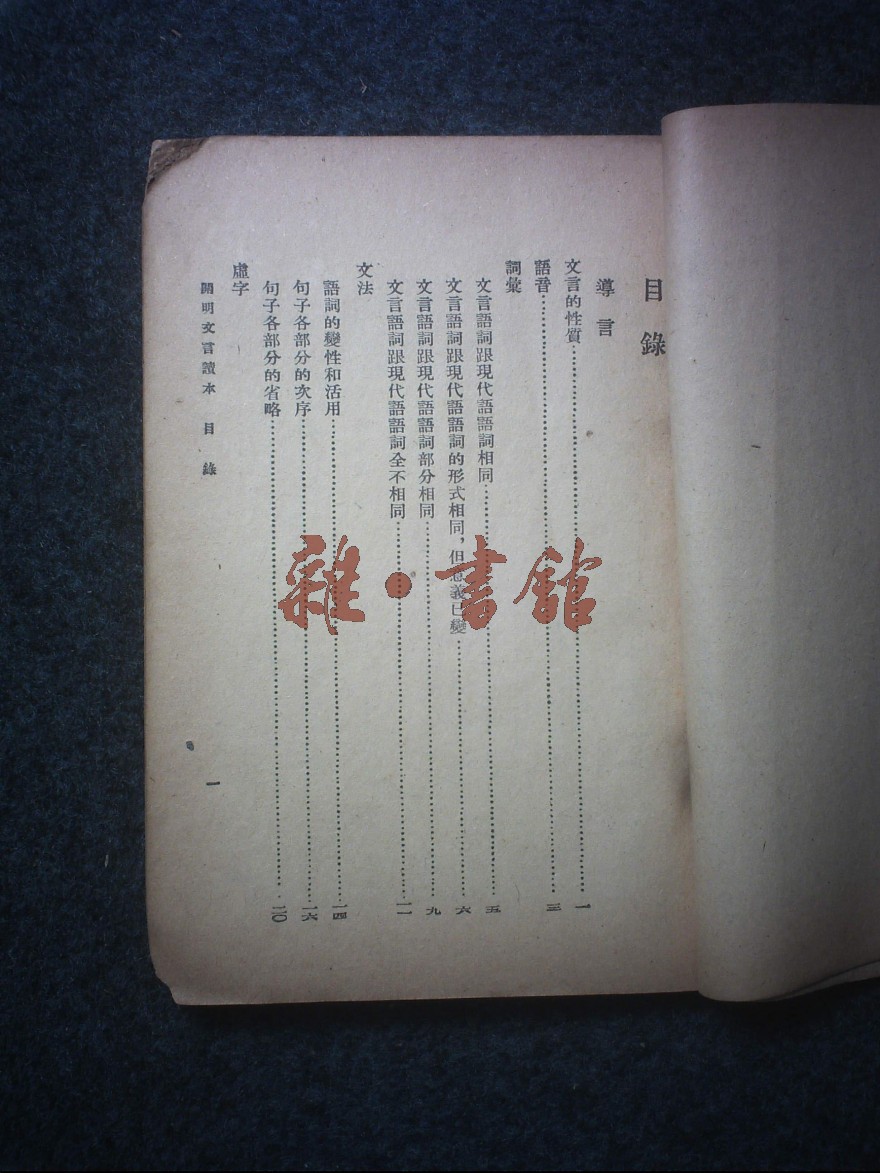 目錄
導言
文言的性質……一
語音……三
詞彙
文言語詞跟現代語語詞相同……五
文言語詞跟現代語語詞的形式相同，但意義已變……六
文言語詞跟現代語語詞部分相同……九
文言語詞跟現代語語詞全不相同……一一
文法
語詞的變性和活用……一四
句子各部分的次序……一六
句子各部分的省略……二〇
虛字
開明文言讀本 目錄 一
雜·書館